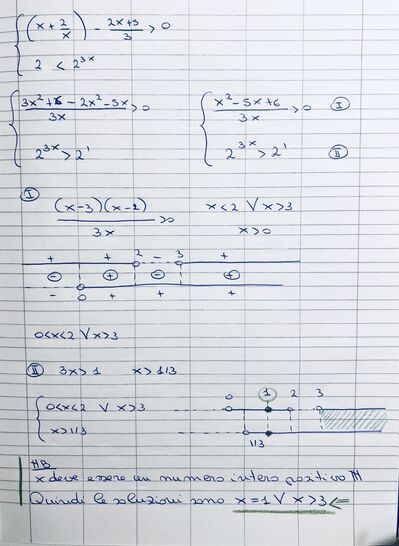 (x + 2/x) - 2x+5/3 > 0
2 < 2^3x
3x²+6-2x²-5x/3x > 0    x²-5x+6/3x > 0  I
2^3x > 2^1    2^3x > 2^1  II
I  (x-3)(x-2)/3x > 0    x<2 ∨ x>3
x>0
+ + 2 - 3 +
- + - +
- 0 + + +
0<x<2 ∨ x>3
II  3x>1    x>1/3
0<x<2 ∨ x>3    0 1 2 3
x>1/3    1/3
NB
x deve essere un numero intero positivo
Quindi le soluzioni sono x=1 ∨ x>3 ⇐